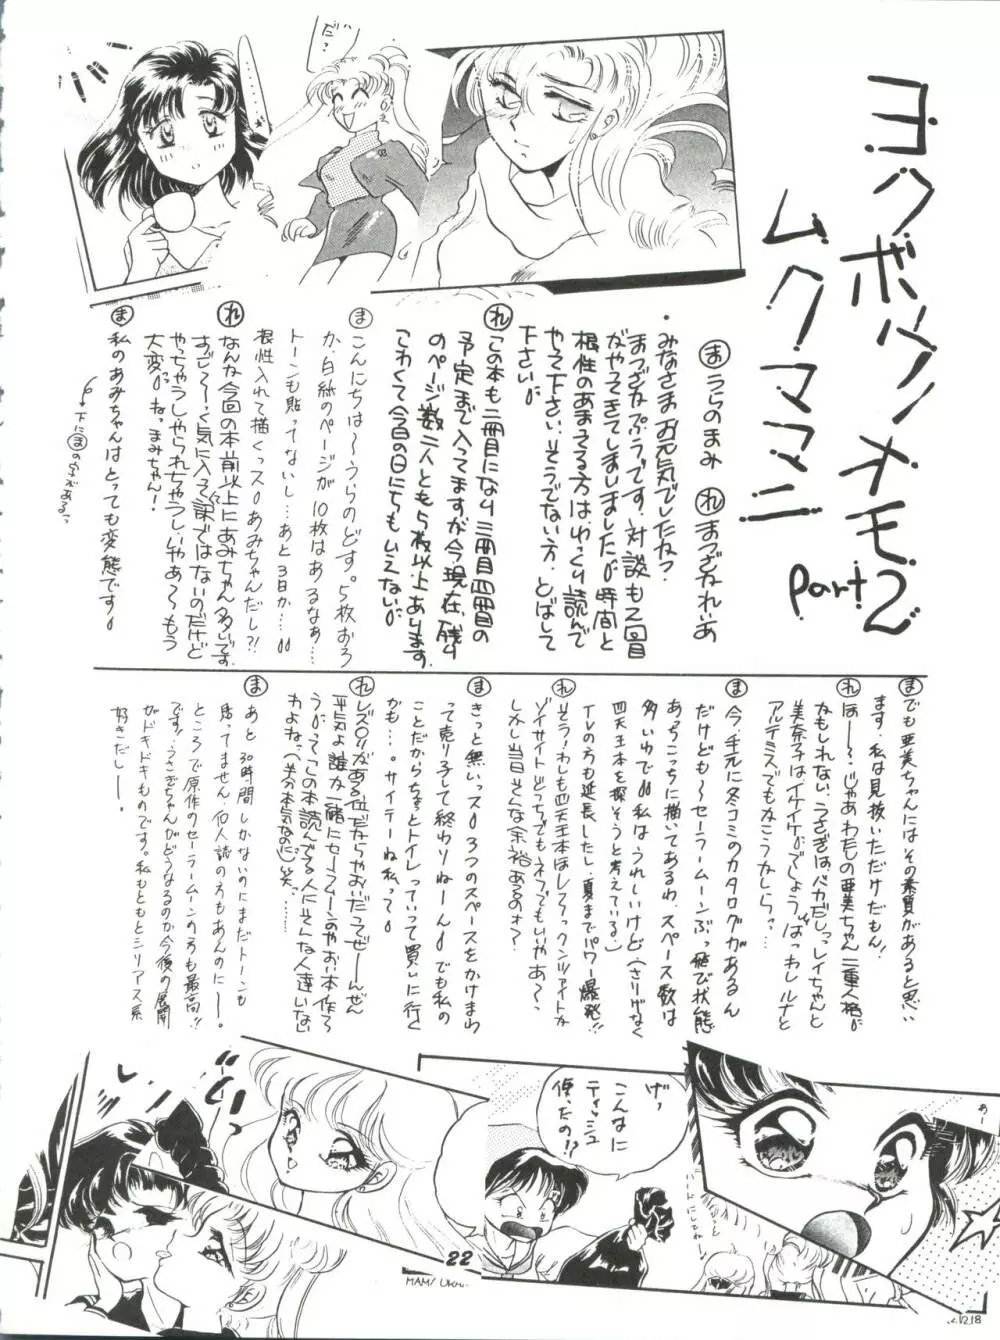 ヨクボウノメモ
ムクママニ
Part 2
だ?
・・・・・
ま うらのまみ れ まつざかれいあ
みなさまお元気でしたね?
まつざかぷぅです。対談も2回目
がやってきてしまいました 時間と
根性のあまえる方はゆっくり読んで
やって下さい…そうでない方、とばして
下さい
れ この本も二冊目になり三冊目四冊目の
予定まで入ってますが今、現在、残り
のページ数 二人とも5枚以上あります
こわくて今日の日にちもいえない
ま こんにちは〜うらのどす。5枚おろ
か、白紙のページが10枚はあるなぁ…
トーンも貼ってないし…あと3日か…
根性入れて描くっス あみちゃんだし?!
れ なんな今回の本前以上にあみちゃん多いです
すご〜く気に入ってる訳ではないのだけど
やっちゃうしやられちゃうし、いやあ〜もう
大変 ねっまみちゃん!
ま 私のあみちゃんはとっても変態です
下にまの字がある
ま でも亜美ちゃんにはその素質があると思い
ます、私は見抜いただけだもん!
れ はぁ〜〜?じゃあわたしの亜美ちゃん二重人格
なもしれない、うさぎはバカだしっレイちゃんと
美奈子はイケイケ でしょう ばっわしルナと
アルテミスでもかこうかしらっ…
ま 今、手元に冬コミのカタログがあるん
だけども〜セーラームーンぶっ飛び状態
あっちこっちに描いてあるわ、スペース数は
多いわで 私はうれしいけど(さりげなく
四天王本を探そうと考えている)
TVの方も延長したし、夏までパワー爆発!!
れ そう!わしも四天王本ほしくてっクンツァイトか
ゾイサイトどっちでもネフでもいやあ〜、
しかし当日そんな余裕あるのす?
ま きっと無いっス 3つのスペースをかけまわ
って売り子して終わりねーん でも私の
ことだからちょっとトイレっていって買いに行く
かも…サイテーね私って
れ レズ がある位だからやおいだってぜーんぜん
平気よ誰か一緒にセーラームーンのやおい本作ろ
う って この本読んでる人にそんな人達いない
わよねっ(半分本気なのに)笑っ……
ま あと30時間しかないのにまだトーンも
貼ってません、個人誌の方もあんのにー。
ところで原作のセーラームーンの方も最高!!
です! うさぎちゃんがどうなるのか今後の展開
がドキドキものです。私もともとシリアス系
好きだしー。
げっ
こんなに
ティッシュ
使ったの!?
あー
22
MAMI URA
2.12.18